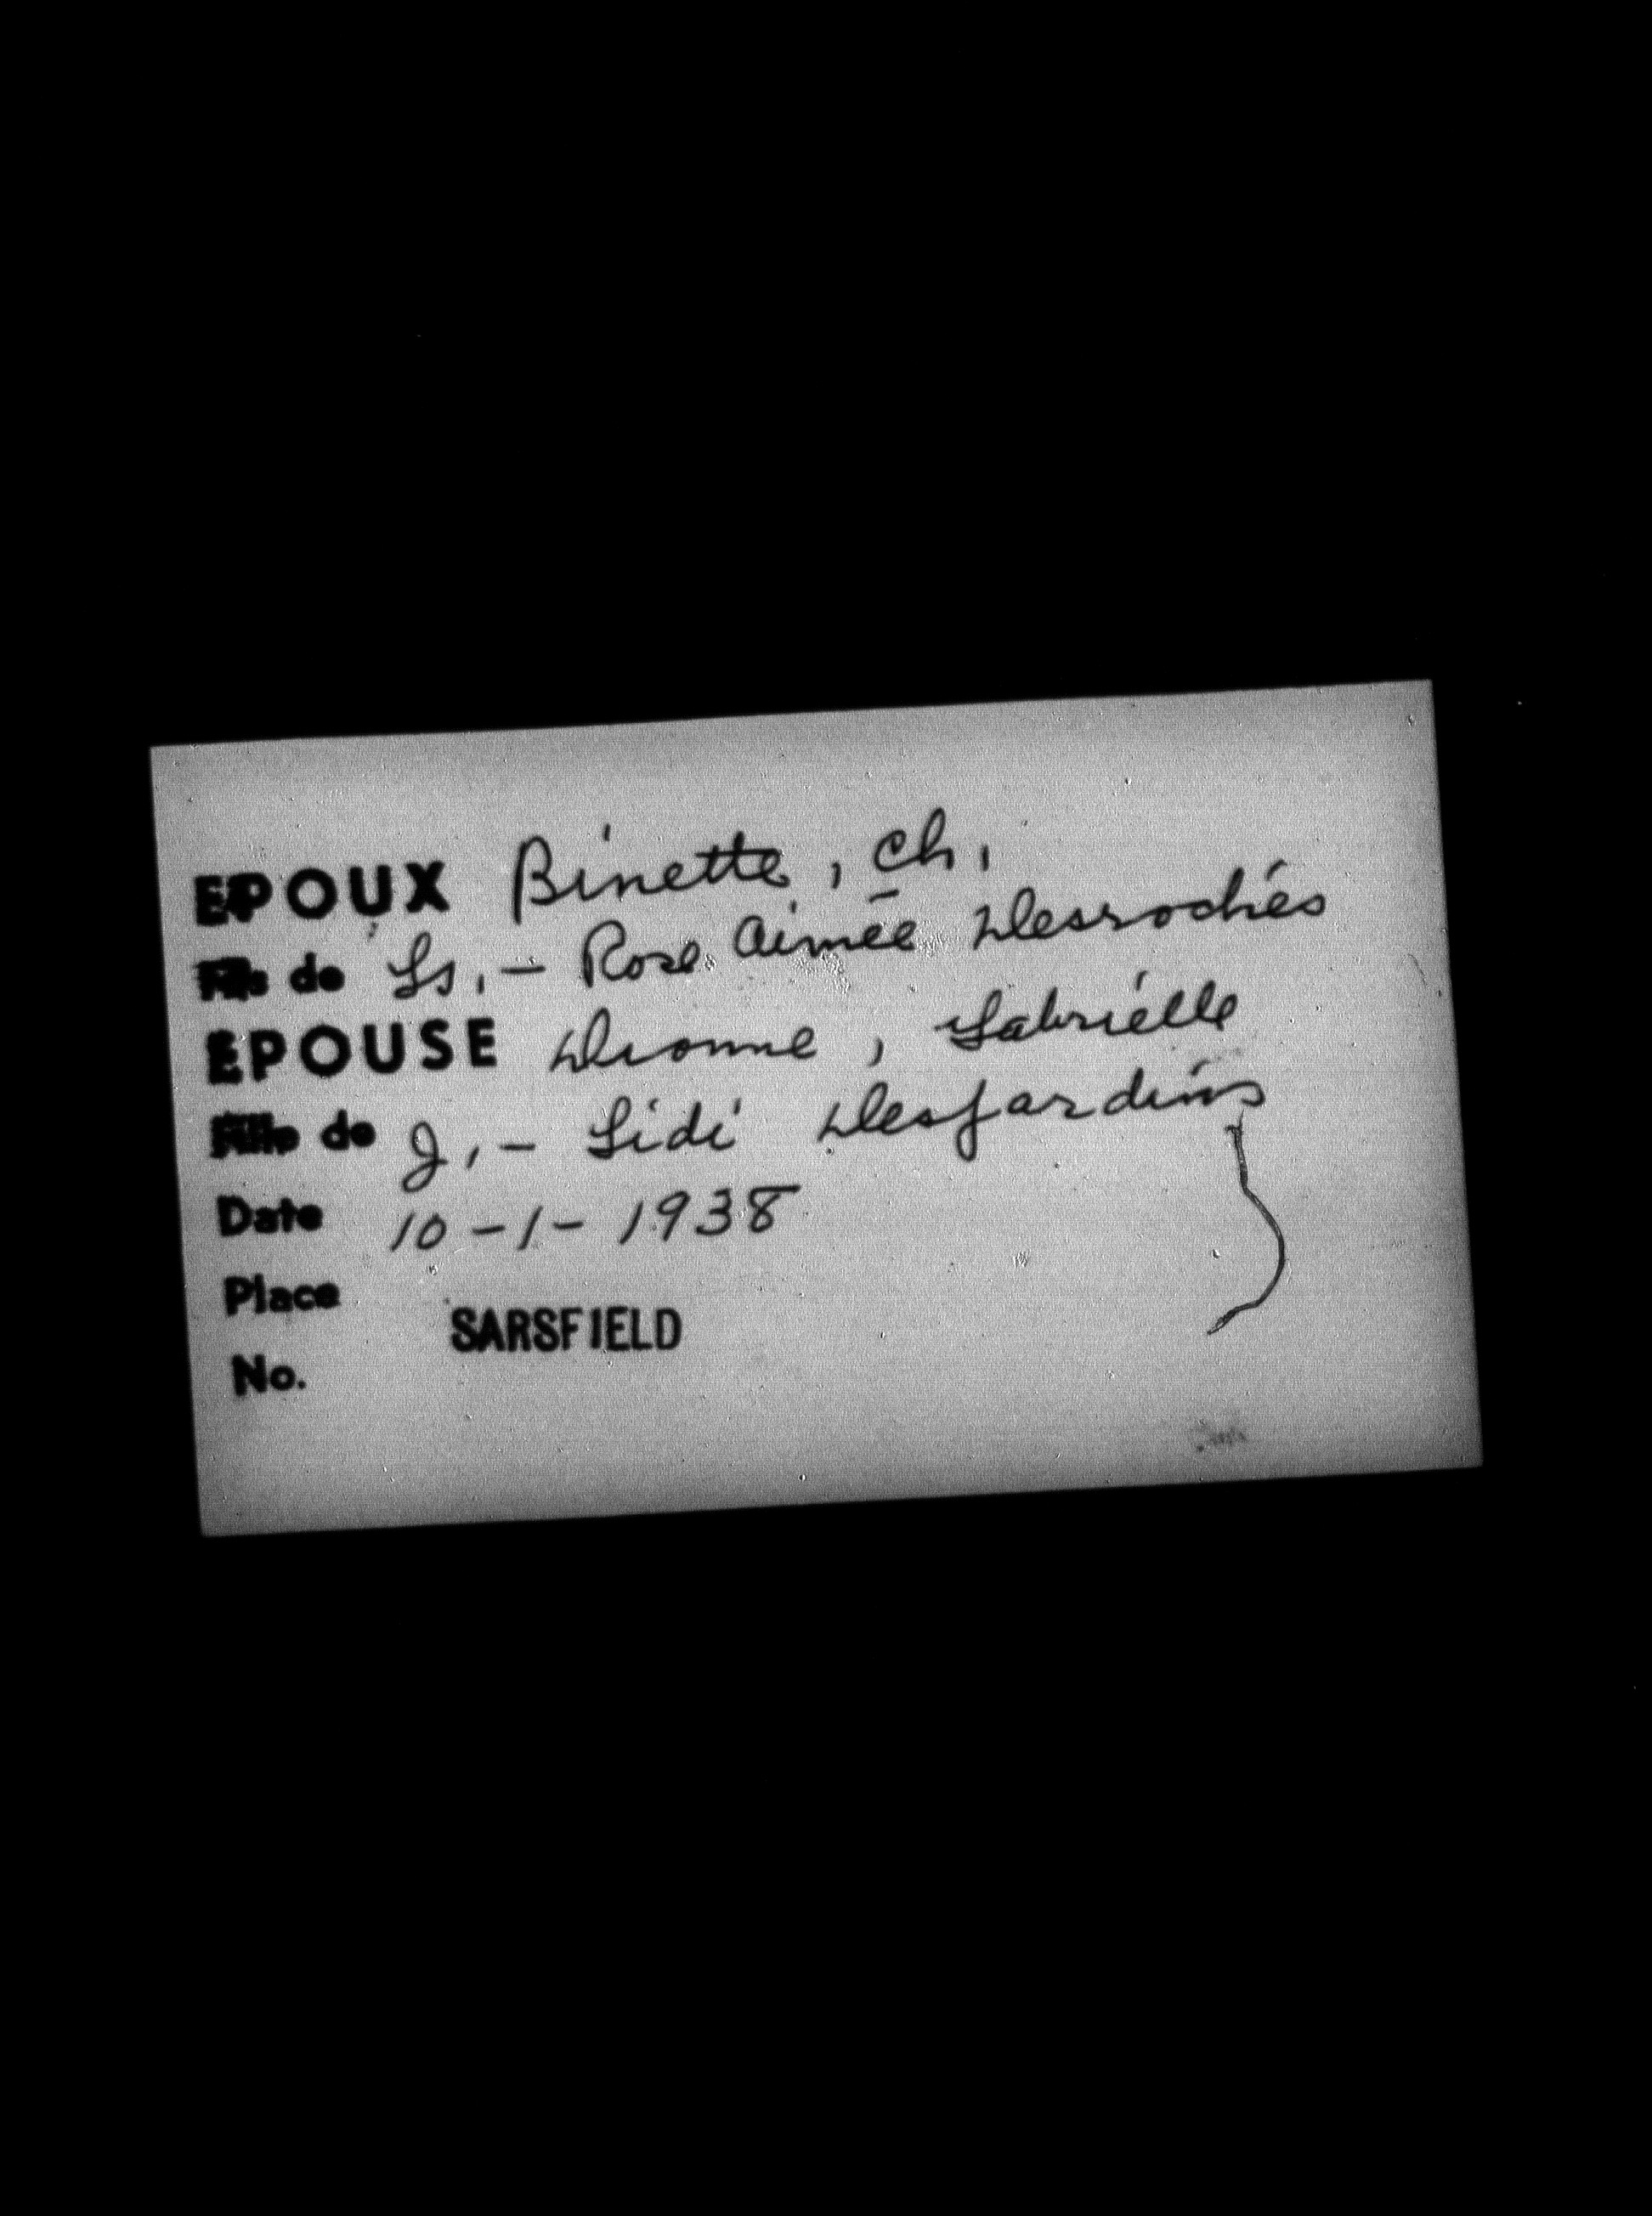 EPOUX Binette, Ch.
Fils de Ls. - Rose Aimée Desroches
EPOUSE Dionne, Gabrielle
Fille de J. - Lidi Desjardins
Date 10-1-1938
Place
SARSFIELD
No.